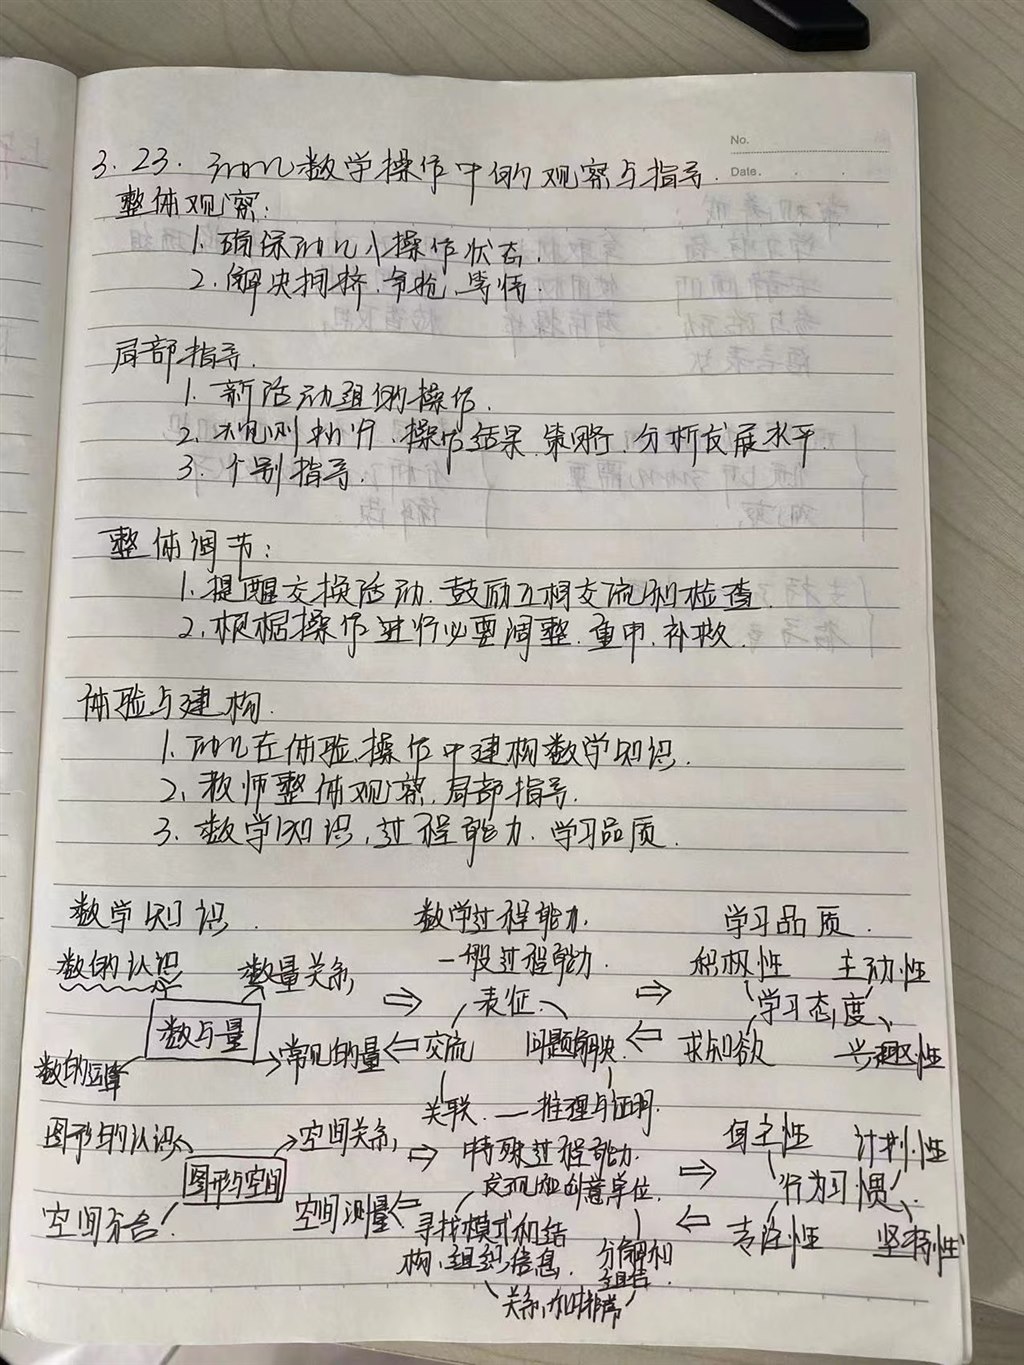 No.
Date.
3.23. 幼儿数学操作中的观察与指导.
整体观察:
1. 确保幼儿小操作状态.
2. 解决拥挤.争抢.等待.
局部指导.
1. 新活动组的操作.
2. 观测 操作结果.策略. 分析发展水平.
3. 个别指导.
整体调节:
1. 提醒交换活动.鼓励互相交流和检查.
2. 根据操作进行必要调整.重申.补救.
体验与建构.
1. 幼儿在体验.操作中建构数学知识.
2. 教师整体观察.局部指导.
3. 数学知识.过程能力.学习品质.
数学知识. 数学过程能力. 学习品质.
数的认识 数量关系 一般过程能力. 积极性 主动性
表征. 学习态度
数与量
数的运算 常见的量 交流 问题解决. 求知欲 兴趣性
关联. 推理与证明.
图形的认识 空间关系 特殊过程能力. 自主性 计划性
图形与空间 发现和创意单位. 行为习惯
空间组合 空间测量 寻找模式和结 专注性 坚持性
构、组织信息. 分解和
组合.
关系和排序